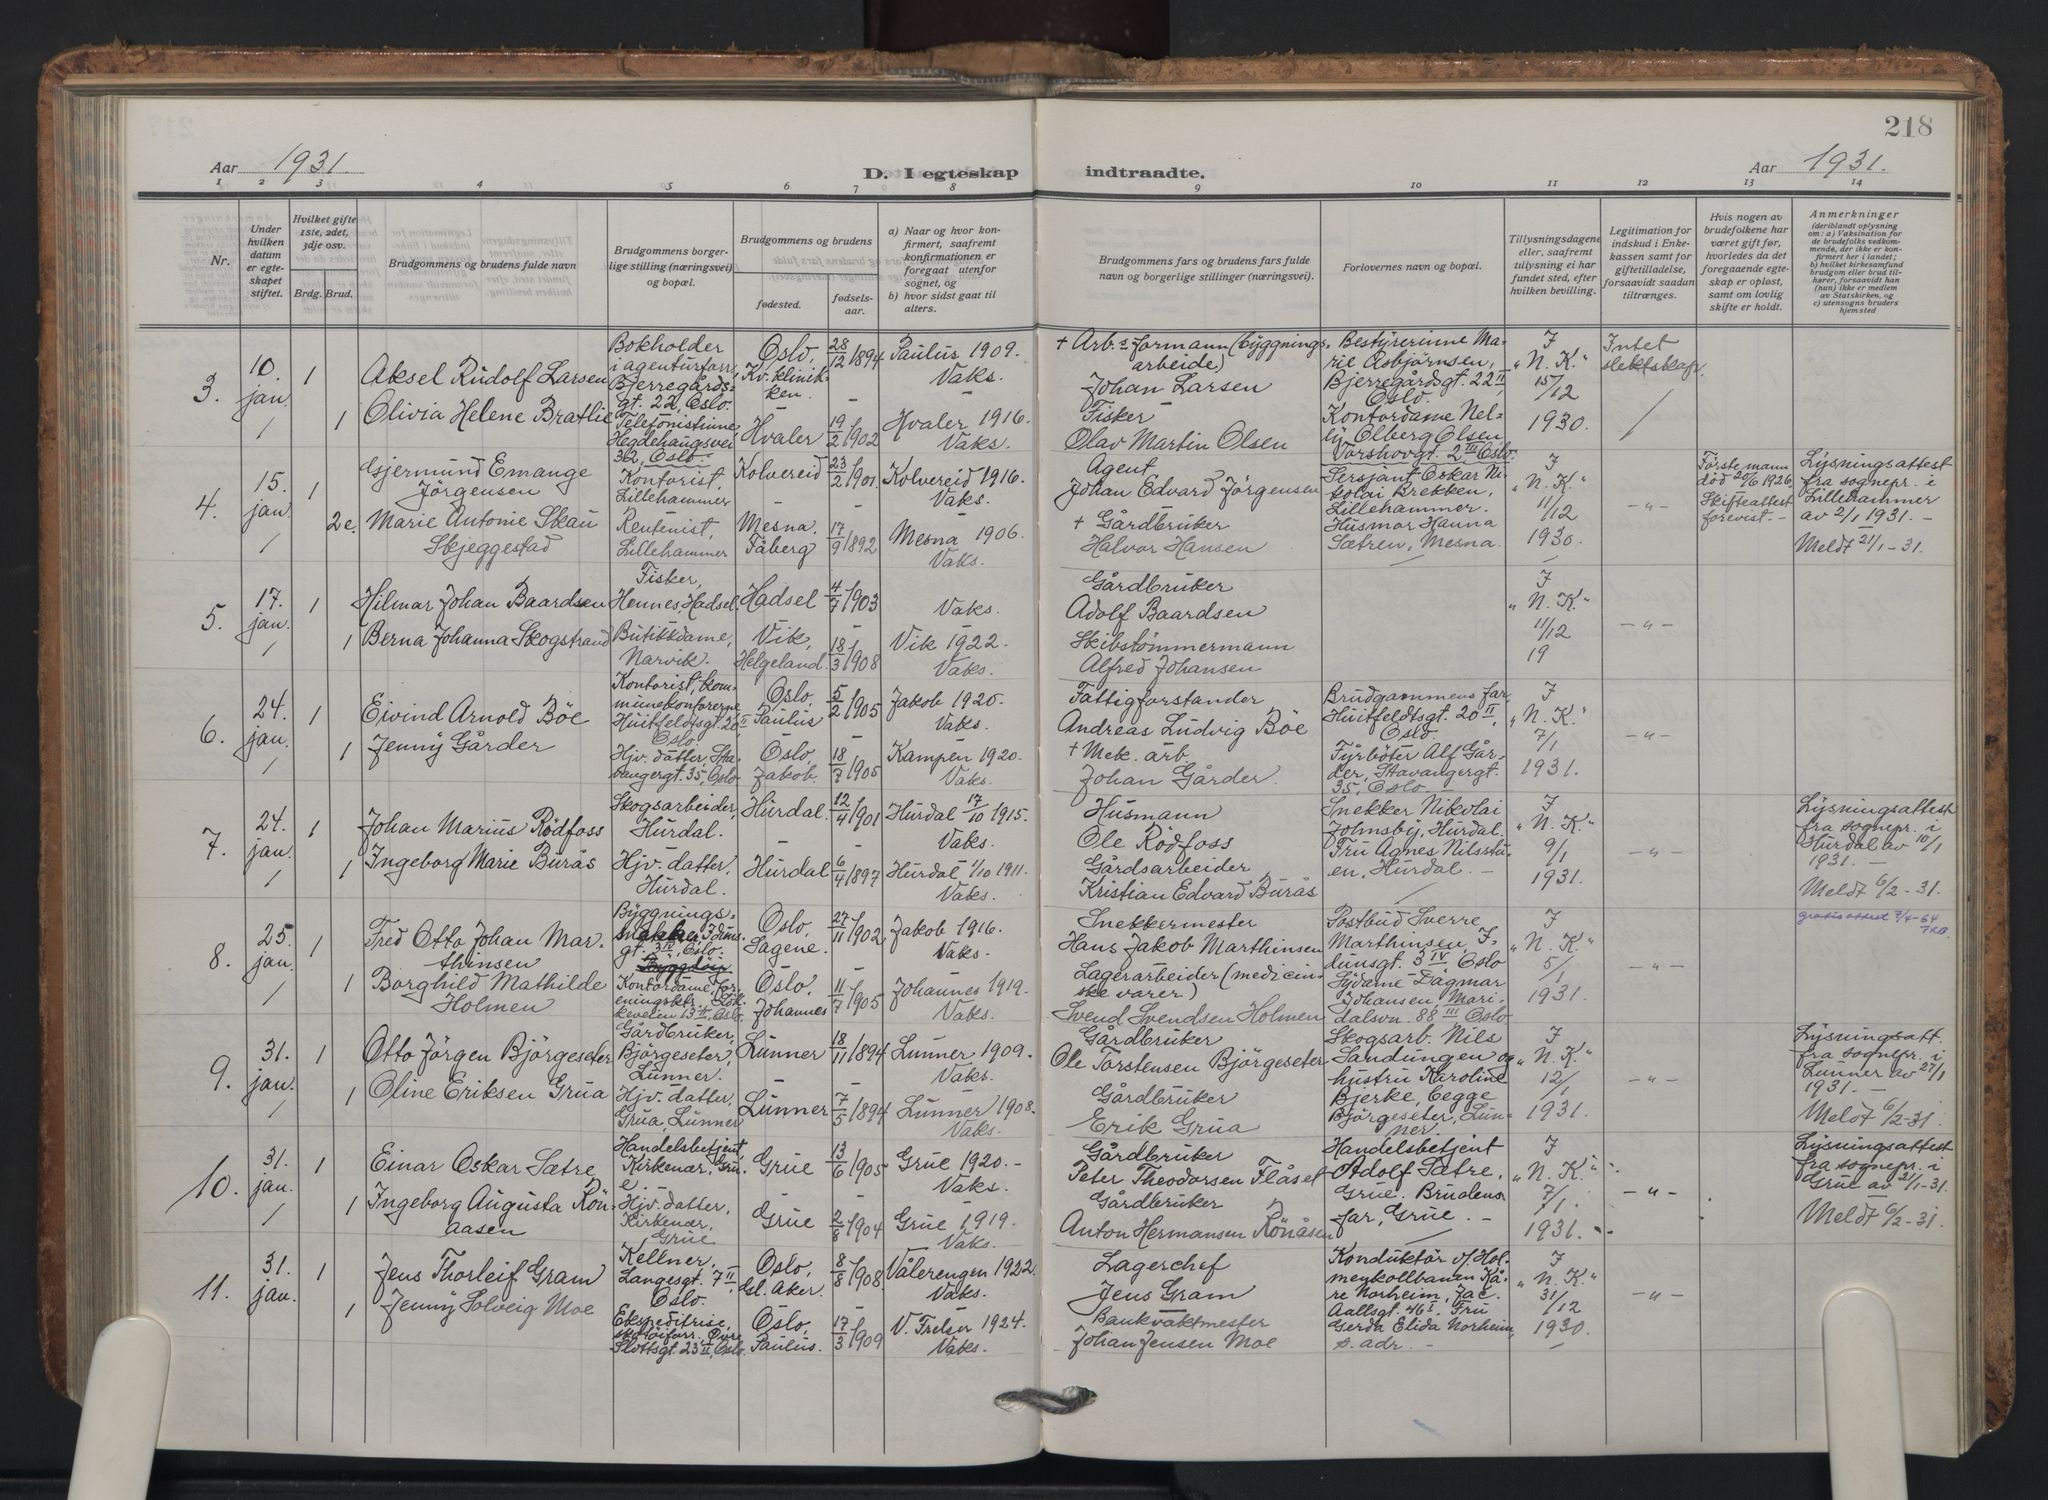 218
Aar 1931.
D. I egteskap indtraadte.
Aar 1931.
1 2 3 4 5 6 7 8 9 10 11 12 13 14
Nr.
Under hvilken datum er egteskapet stiftet.
Hvilket gifte 1ste, 2det, 3dje osv.
Brdg. Brud.
Brudgommens og brudens fulde navn
Brudgommens borgerlige stilling (næringsvei) og bopæl.
Brudgommens og brudens
fødested.
fødselsaar.
a) Naar og hvor konfirmert, saafremt konfirmationen er foregaat utenfor sognet, og
b) hvor sidst gaat til alters.
Brudgommens fars og brudens fars fulde navn og borgerlige stillinger (næringsvei).
Forlovernes navn og bopæl.
Tillysningsdagene eller, saafremt tillysning ei har fundet sted, efter hvilken bevilling.
Legitimation for indskud i Enkekassen samt for giftetilladelse, forsaavidt saadan tiltrænges.
Hvis nogen av brudefolkene har været gift før, hvorledes da det foregaaende egteskap er opløst, samt om lovlig skifte er holdt.
Anmerkninger
(deriblandt oplysning om: a) Vaksination for de brudefolks vedkommende, der ikke er konfirmert her i landet;
b) hvilket kirkesamfund brudgom eller brud tilhører, forsaavidt han (hun) ikke er medlem av Statskirken, og
c) utensogns bruders hjemsted
3. 10. jan. 1
Aksel Rudolf Larsen
Bokholder i agenturforr., Bjerregårdsgt. 22, Oslo.
Oslo, Kv. klinikken.
28/12 1894
Paulus 1909. Vaks.
+ Arb.s formann (bygningsarbeide) Johan Larsen
Bestyrerinne Marie Asbjørnsen, Bjerregårdsgt. 22 II Oslo.
I „N. K." 15/12 1930.
Intet slektskap
1 Olivia Helene Bratlie
Telefonistinne, Hegdehaugsvei 32, Oslo.
Hvaler 19/2 1902
Hvaler 1916. Vaks.
Fisker Olav Martin Olsen
Kontordame Nelly Olberg Olsen, Vorshovgt. 2 III Oslo.
4. 15. jan 1
Gjermund Emange Jörgensen
Kontorist, Lillehammer
Kolvereid 23/2 1901.
Kolvereid 1916. Vaks.
Agent Johan Edvard Jörgensen
Sersjant Oskar Nikolai Brekken, Lillehammer.
I „N. K." 11/12 1930.
-„-
Förste mann död 20/6 1926. Skifteattest forevist. -
Lysningsattest fra sognepr. i Lillehammer av 2/1 1931. -
Meldt 21/1 - 31.
2e. Marie Antonie Skau Skjeggestad
Rentenist, Lillehammer
Mesna, Fåberg 17/9 1892
Mesna 1906. Vaks.
+ Gårdbruker Halvor Hansen
Husmor Hanna Sætren, Mesna.
5. 17. jan. 1
Hilmar Johan Baardsen
Fisker, Hennes, Hadsel.
Hadsel 4/7 1903
Vaks.
Gårdbruker Adolf Baardsen
I „N. K." 11/12 19
-„-
1 Berna Johanna Skogstrand
Butikkdame, Narvik.
Vik, Helgeland. 18/3 1908
Vik 1922. Vaks.
Skibstömmermann Alfred Johansen
6. 24. jan. 1
Eivind Arnold Böe
Kontorist, kommunekontorerne Huitfeldtsgt. 20 II Oslo
Oslo, Paulus 5/2 1905
Jakob 1920. Vaks.
Fattigforstander Andreas Ludvig Böe
Brudgommens far, Huitfeldtsgt. 20 II, Oslo.
I „N. K." 7/1 1931.
-„-
1 Jenny Gårder
Hjv. datter, Stavangergt. 35, Oslo
Oslo, Jakob. 18/7 1905
Kampen 1920. Vaks.
+ Mek. arb. Johan Gårder.
Fyrböter Alf Gårder, Stavangergt. 35, Oslo
7. 24. jan. 1
Johan Marius Rödfoss
Skogsarbeider, Hurdal.
Hurdal 12/4 1901
Hurdal 17/10 1915. Vaks.
Husmann Ole Rödfoss
Snekker Nikolai Johnsby, Hurdal.
I „N. K." 9/1 1931.
-„-
Lysningsattest fra sognepr. i Hurdal av 10/1 1931. -
Meldt 6/2 - 31.
1 Ingeborg Marie Burås
Hjv. datter, Hurdal.
Hurdal 6/4 1897
Hurdal 1/10 1911. Vaks.
Gårdsarbeider Kristian Edvard Burås
Fru Agnes Nilsstuen, Hurdal. -
8. 25. jan. 1
Fred Otto Johan Marthinsen
Bygningssnekker Idunsgt. 3 IV, Oslo.
Oslo, Sagene. 27/11 1902
Jakob 1916. Vaks.
Snekkermester Hans Jakob Marthinsen
Postbud Sverre Marthinsen, Idunsgt. 3 IV Oslo
I „N. K." 5/1 1931.
-„-
gratisattest 7/4-64
1 Borghild Mathilde Holmen
Oslo, Johannes 11/7 1905
Johannes 1919. Vaks.
Lagerarbeider (medicinske varer) Svend Svendsen Holmen
Sydame Dagmar Johansen, Maridalsvn. 88 III Oslo
9. 31. jan. 1
Otto Jörgen Björgeseter
Gårdbruker, Björgeseter, Lunner.
Lunner 18/11 1894
Lunner 1909. Vaks.
Gårdbruker Ole Torstensen Björgeseter
Skogsarb. Nils Sandungen og hustru Karoline Bjerke, begge Björgeseter, Lunner.
I „N. K." 12/1 1931.
-„-
Lysningsatt. fra sognepr. i Lunner av 27/1 1931. -
Meldt 6/2 - 31.
1 Oline Eriksen Grua
Hjv. datter, Grua, Lunner
Lunner 7/5 1894
Lunner 1908. Vaks.
Gårdbruker Erik Grua
10. 31. jan. 1
Einar Oskar Sætre
Handelsbetjent, Kirkenær, Grue.
Grue 13/6 1905
Grue 1920. - Vaks.
Gårdbruker Peter Theodorsen Flåset
Handelsbetjent Adolf Sætre, Grue. Brudens far, Grue. -
I „N. K." 7/1 1931.
-„-
Lysningsattest fra sognepr. i Grue av 21/1-31.
Meldt 6/2 - 31.
1 Ingeborg Augusta Rönaasen
Hjv. datter, Kirkenær, Grue
Grue 2/8 1904
Grue 1919. Vaks.
Gårdbruker Anton Hermansen Rönåsen
11. 31. jan. 1
Jens Thorleif Gram
Kellner, Langesgt. 7 II, Oslo.
Oslo, Gl. Aker. 8/8 1908
Vålerengen 1922. Vaks.
Lagerchef Jens Gram
Konduktör v/Holmenkollbanen Kåre Norheim, Jac. Aallsgt. 46 I. Fru Gerda Elida Norheim, s. adr. -
I „N. K." 31/12 1930.
-„-
1 Jenny Solveig Moe
Ekspeditrise, skotöiforr., Övre Slottsgt. 23 II, Oslo.
Oslo, Paulus. 17/3 1909
V. Frelser 1924. Vaks.
Bankvaktmester Johan Jensen Moe